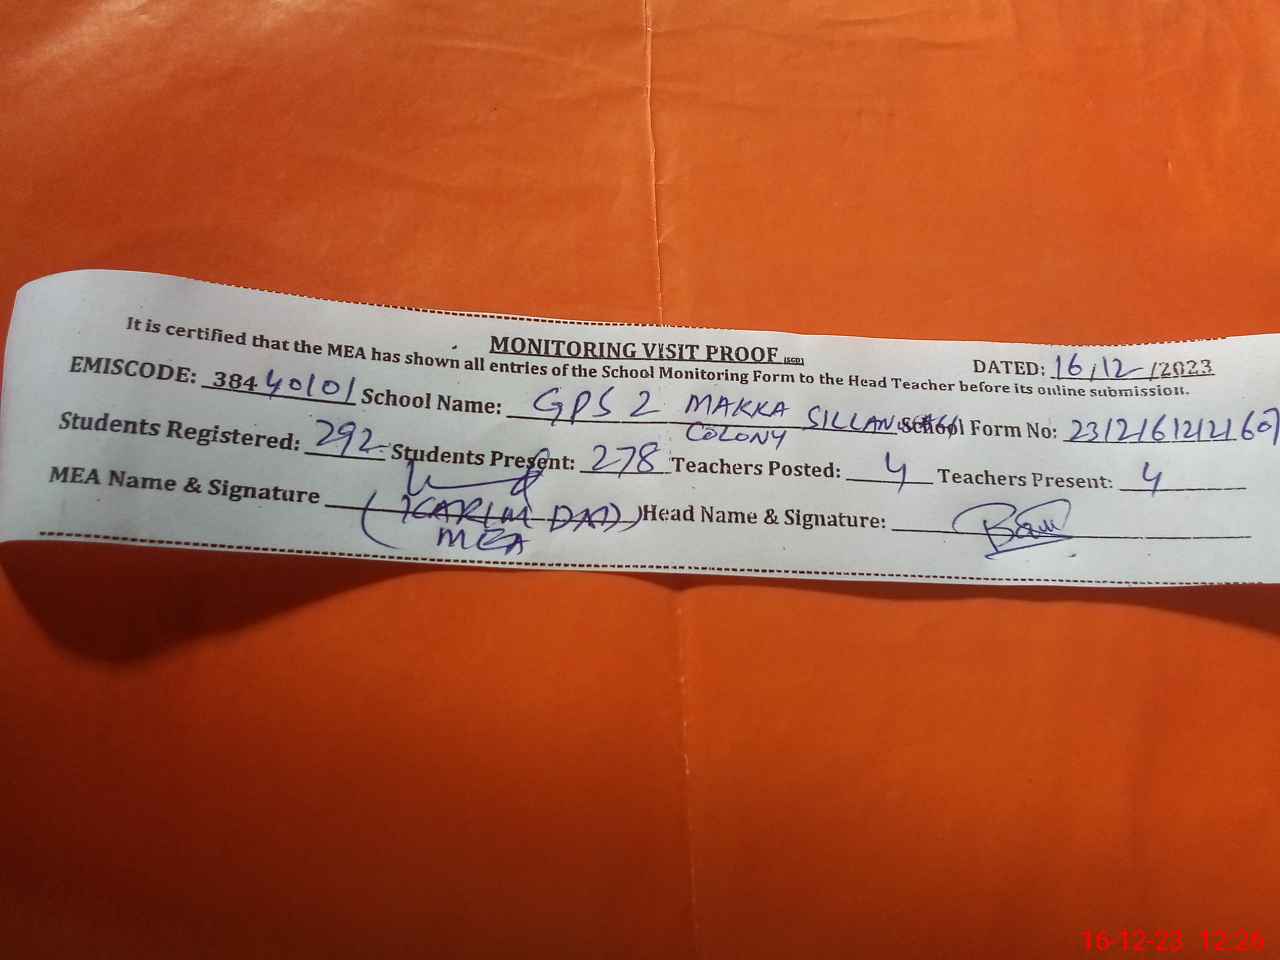 MONITORING VISIT PROOF (SGD)
DATED: 16/12/2023
It is certified that the MEA has shown all entries of the School Monitoring Form to the Head Teacher before its online submission.
EMISCODE: 38440101 School Name: GPS 2 MAKKA COLONY SILLANWALI School Form No:
Students Registered: 292 Students Present: 278 Teachers Posted: 4 Teachers Present: 4
MEA Name & Signature (KARIM DAD) MEA Head Name & Signature:
16-12-23 12:26